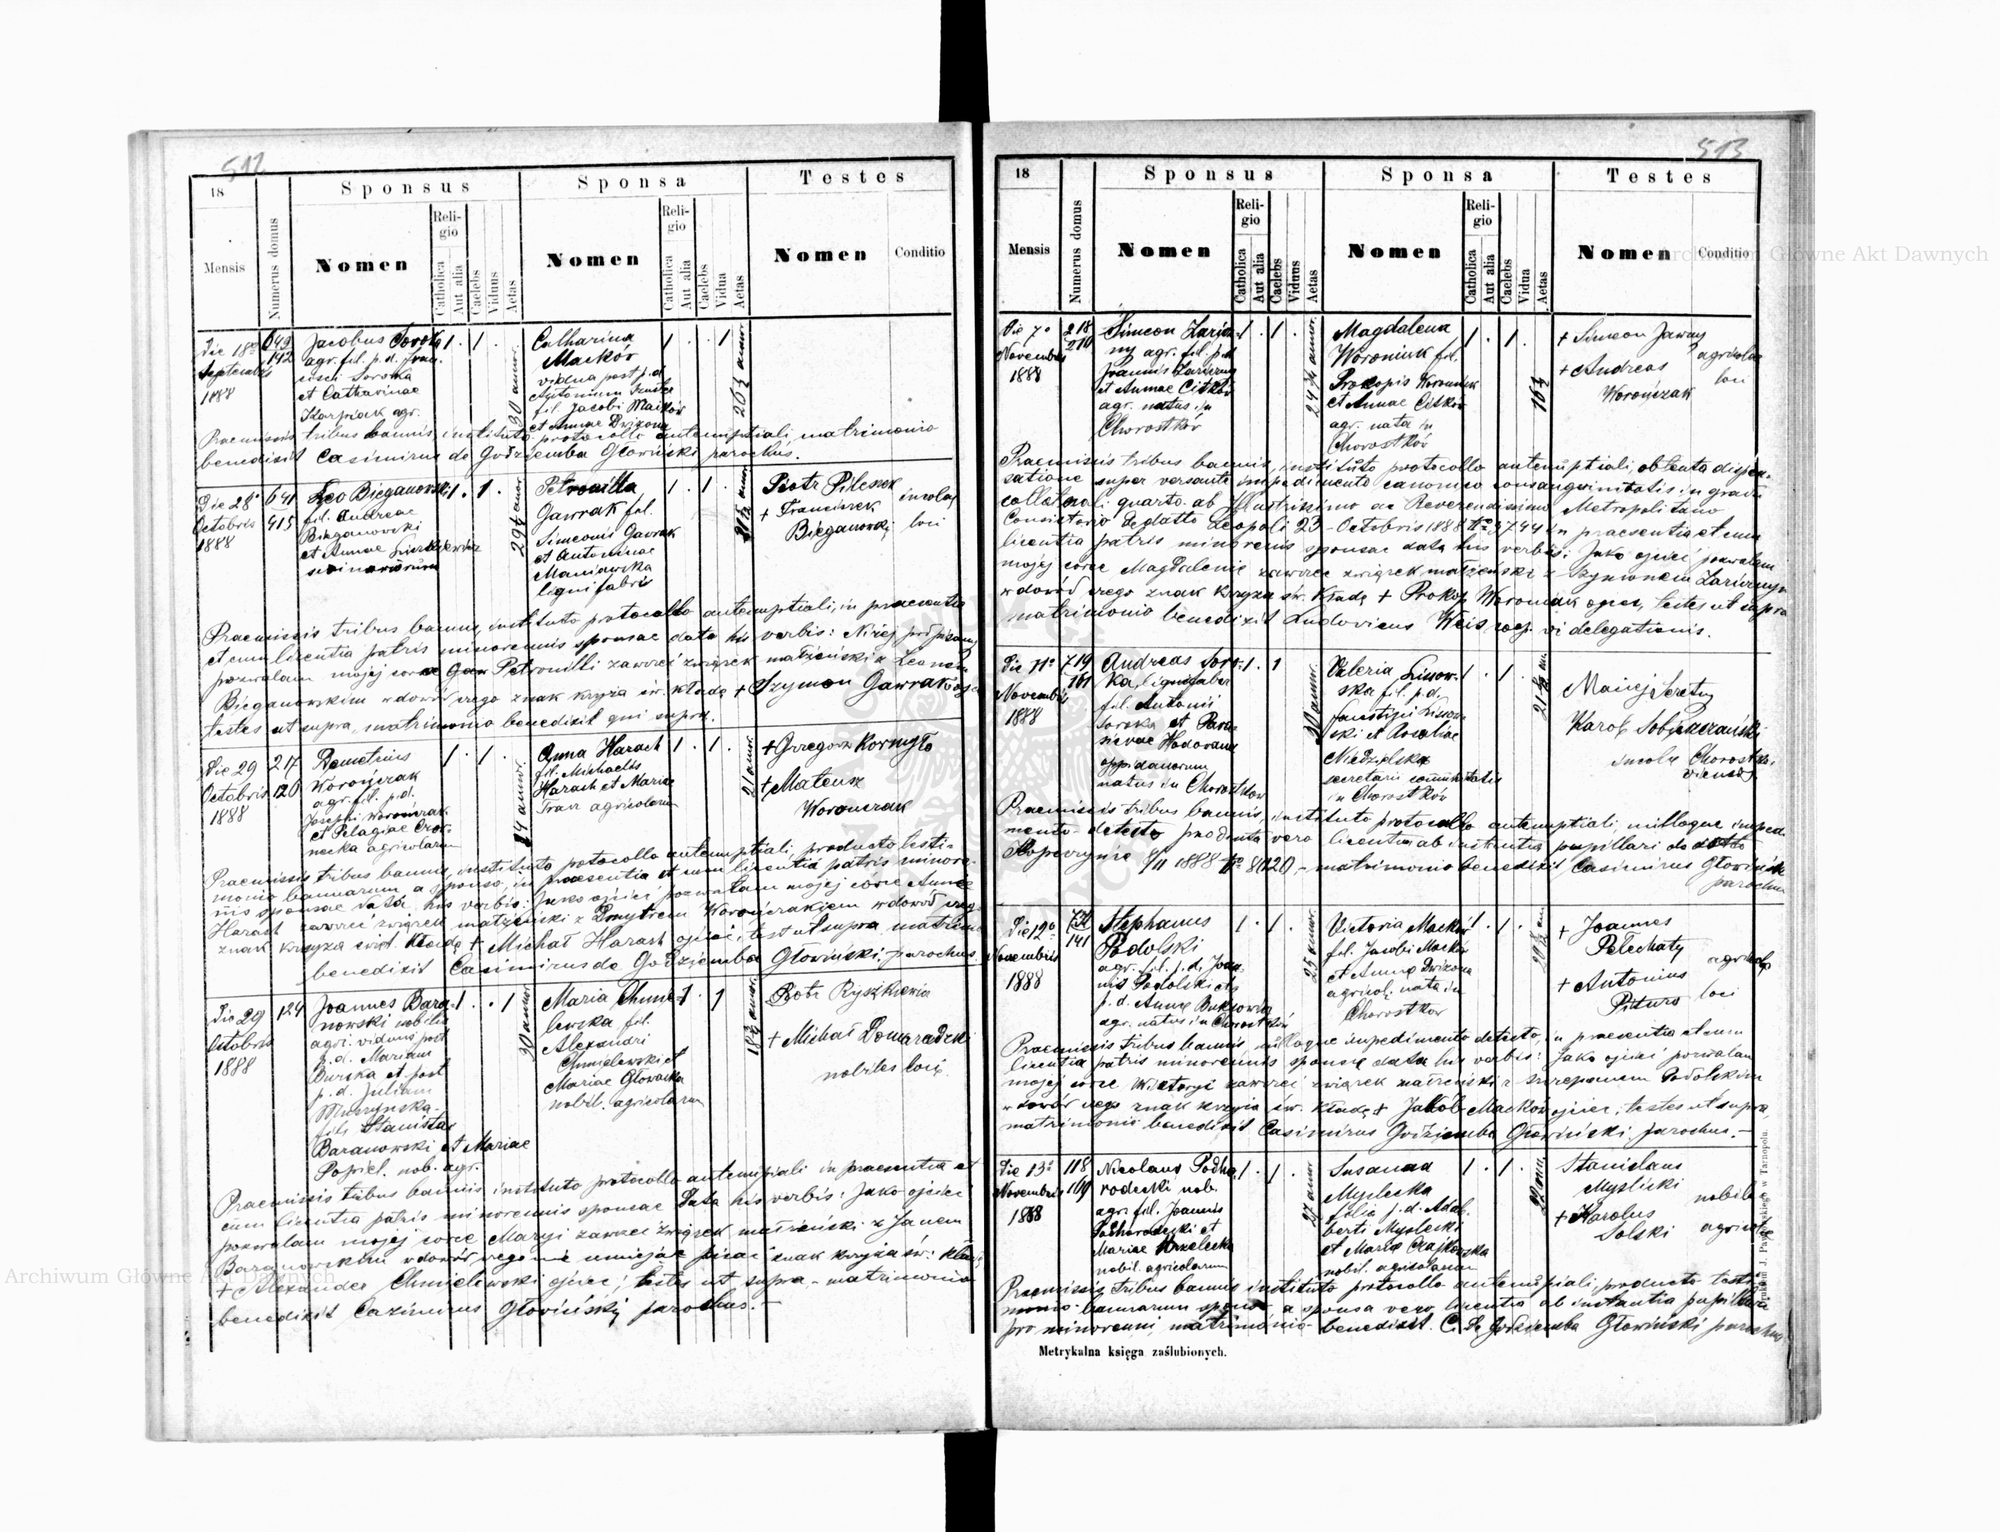 512
18
Sponsus
Sponsa
Testes
Mensis
Numerus domus
Nomen
Religio
Catholica
Aut alia
Caelebs
Viduus
Aetas
Nomen
Religio
Catholica
Aut alia
Caelebs
Vidua
Aetas
Nomen
Conditio
Die 18
Septembris
1888
649
142
Jacobus Soroka
agr. fil. p. d. Fran-
cisci Soroka
et Catharinae
Karpiak agr.
1 . 1 .
30 annor.
Catharina
Maćków
vidua post p. d.
Antonium
fil. Jacobi Maćków
et Annae Dvizona
1 . . 1
26 ½ annor.
Praemissis tribus bannis, instituto protocollo antenuptiali, matrimonio
benedixit Casimirus de Godziemba Głowiński parochus.
Die 28
Octobris
1888
641
415
Leo Bieganowski
fil. Andreae
Bieganowski
et Annae
1 . 1 .
29 ½ annor.
Petronilla
Gawrak fil.
Simeonis Gawrak
et Antoninae
Maniawska
lignifabri
1 . 1 .
Piotr Pileszek
+ Franciszek
Bieganowski
incolae
loci
Praemissis tribus bannis, instituto protocollo antenuptiali, in praesentia
et cum licentia patris minorennis sponsae data his verbis: Niżej podpisany
pozwalam mojej corce Gaw Petronilli zawrzeć związek małżeński z Leonem
Bieganowskim w dowód czego znak krzyża św. kładę + Szymon Gawrak
testes ut supra, matrimonio benedixit qui supra.
Die 29
Octobris
1888
217
120
Demetrius
Worończak
agr. fil. p. d.
Josephi Worończak
et Pelagiae
agricolarum
1 . 1 .
24 annor.
Anna Harach
fil. Michaelis
Harach et Mariae
Tracz agricolarum
1 . 1 .
21 annor.
+ Grzegorz Kornyło
+ Mateusz
Worończak
Praemissis tribus bannis, instituto protocollo antenuptiali, producto testi-
monio bannorum a sponso, in praesentia et cum licentia patris minoren-
nis sponsae data his verbis: Jako ojciec pozwalam mojej corce Annie
Harach zawrzeć związek małżeński z Dmytrem Worończakiem w dowód czego
znak krzyża święt. kładę + Michał Harach ojciec, test ut supra matrim.
benedixit Casimirus de Godziemba Głowiński, parochus.
Die 29
Octobris
1888
124
Joannes Bara-
nowski nobilis
agr. viduus post
p. d. Mariam
Burska et post
p. d. Juliam
fil. Stanislai
Baranowski et Mariae
Popiel. nob. agr.
1 . . 1
30 annor.
Maria Chmie-
lewska fil.
Alexandri
Chmielewski et
Mariae Głowacka
nobil. agricolarum
1 . 1
18 ½ annor.
Piotr Ryszkiewicz
+ Michał Domaradzki
nobiles loci
Praemissis tribus bannis instituto protocollo antenuptiali in praesentia et
cum licentia patris minorennis sponsae data his verbis: Jako ojciec
pozwalam mojej corce Maryi zawrzeć związek małżeński z Janem
Baranowskim w dowód czego nie umiejąc pisać znak krzyża św: kładę
+ Alexander Chmielewski ojciec, testes ut supra - matrimonio
benedixit Cazimirus Głowiński parochus.
513
18
Sponsus
Sponsa
Testes
Mensis
Numerus domus
Nomen
Religio
Catholica
Aut alia
Caelebs
Viduus
Aetas
Nomen
Religio
Catholica
Aut alia
Caelebs
Vidua
Aetas
Nomen
Conditio
Die 7
Novembris
1888
218
210
Simeon Zaricz-
ny agr. fil. p. d.
Joannis
et Annae Citków
agr. natus in
Chorostków
1 . 1 .
24 ¾ annor.
Magdalena
Woroniuk fil.
Prokopis Woroniuk
et Annae Citków
agr. nata in
Chorostków
1 . 1 .
16 ½
+ Simeon Jawny
+ Andreas
Worończak
agricolae
loci
Praemissis tribus bannis, instituto protocollo antenuptiali, obtenta dispen-
satione super versante impedimento canonico consanguinitatis in gradu
collaterali quarto ab Illustrissimo ac Reverendissimo Metropolitano
Consistorio de datto Leopoli 23 Octobris 1888 No 3744 in praesentia et cum
licentia patris minorennis sponsae data his verbis: Jako ojciec pozwalam
mojej corce Magdalenie zawrzec związek małżeński z Szymonem
w dowód czego znak krzyża św. kładę + Prokop Woroniuk ojciec, testes ut supra
matrimonio benedixit Ludovicus Weis coop. vi delegationis.
Die 11
Novembris
1888
719
161
Andreas Soro-
ka, lignifaber
fil. Antonii
Soroka et Paras-
cevae Hodovane
oppidanorum
natus in Chorostkow
1 . 1
30 annor.
Valeria Lisow-
ska fil. p. d.
Faustini Lisow-
ski et Rosaliae
Niedzielska
secretarii communitatis
in Chorostków
1 . 1 .
Maciej Seretny
Karol
incolae Chorostko-
viensis
Praemissis tribus bannis, instituto protocollo antenuptiali, nulloque impedi-
mento detecto producta vero licentia ab instantia pupillari de datto
Kopeczyńce 8/11 1888 No 8020 - matrimonio benedixit Casimirus Głowiński
parochus
Die 12
Novembris
1888
732
141
Stephanus
Podolski
agr. fil. p. d. Joan-
nis Podolski et
p. d. Annae
agr. natus in Chorostków
1 . 1 .
25 annor.
Victoria Maćków
fil. Jacobi Maćków
et Annae Dvizona
agricol. nata in
Chorostkow
1 . 1 .
+ Joannes
Pełechaty
+ Antonius
Pituro
agricolae
loci
Praemissis tribus bannis nulloque impedimento detecto, in praesentia et cum
licentia patris minorennis sponsae data his verbis: Jako ojciec pozwalam
mojej corce Wiktoryi zawrzeć związek małżeński z Szczepanem Podolskim
w dowód czego znak krzyża św. kładę + Jakób Maćków ojciec, testes ut supra,
matrimonio benedixit Casimirus Godziemba Głowiński, parochus. -
Die 13
Novembris
1888
118
169
Nicolaus Podho-
rodecki nob.
agr. fil. Joannis
Podhorodecki et
Mariae
nobil. agricolarum
1 . 1 .
27 annor
Susanna
Myslecka
filia p. d. Adal-
berti Myslecki
et Mariae Czajkowska
nobil. agricolarum
1 . 1 .
22 ann.
Stanislaus
Myslicki
+ Karolus
Solski
nobiles
agricol.
Praemissis tribus bannis instituto protocollo antenuptiali, producto testi-
monio bannorum sponsi a sponsa vero licentia ab instantia pupillari
pro minorenni, matrimonio benedixit C. de Godziemba Głowiński parochus
Metrykalna księga zaślubionych.
Drukiem J. Pawłowskiego w Tarnopolu.
Archiwum Główne Akt Dawnych
Archiwum Główne Akt Dawnych